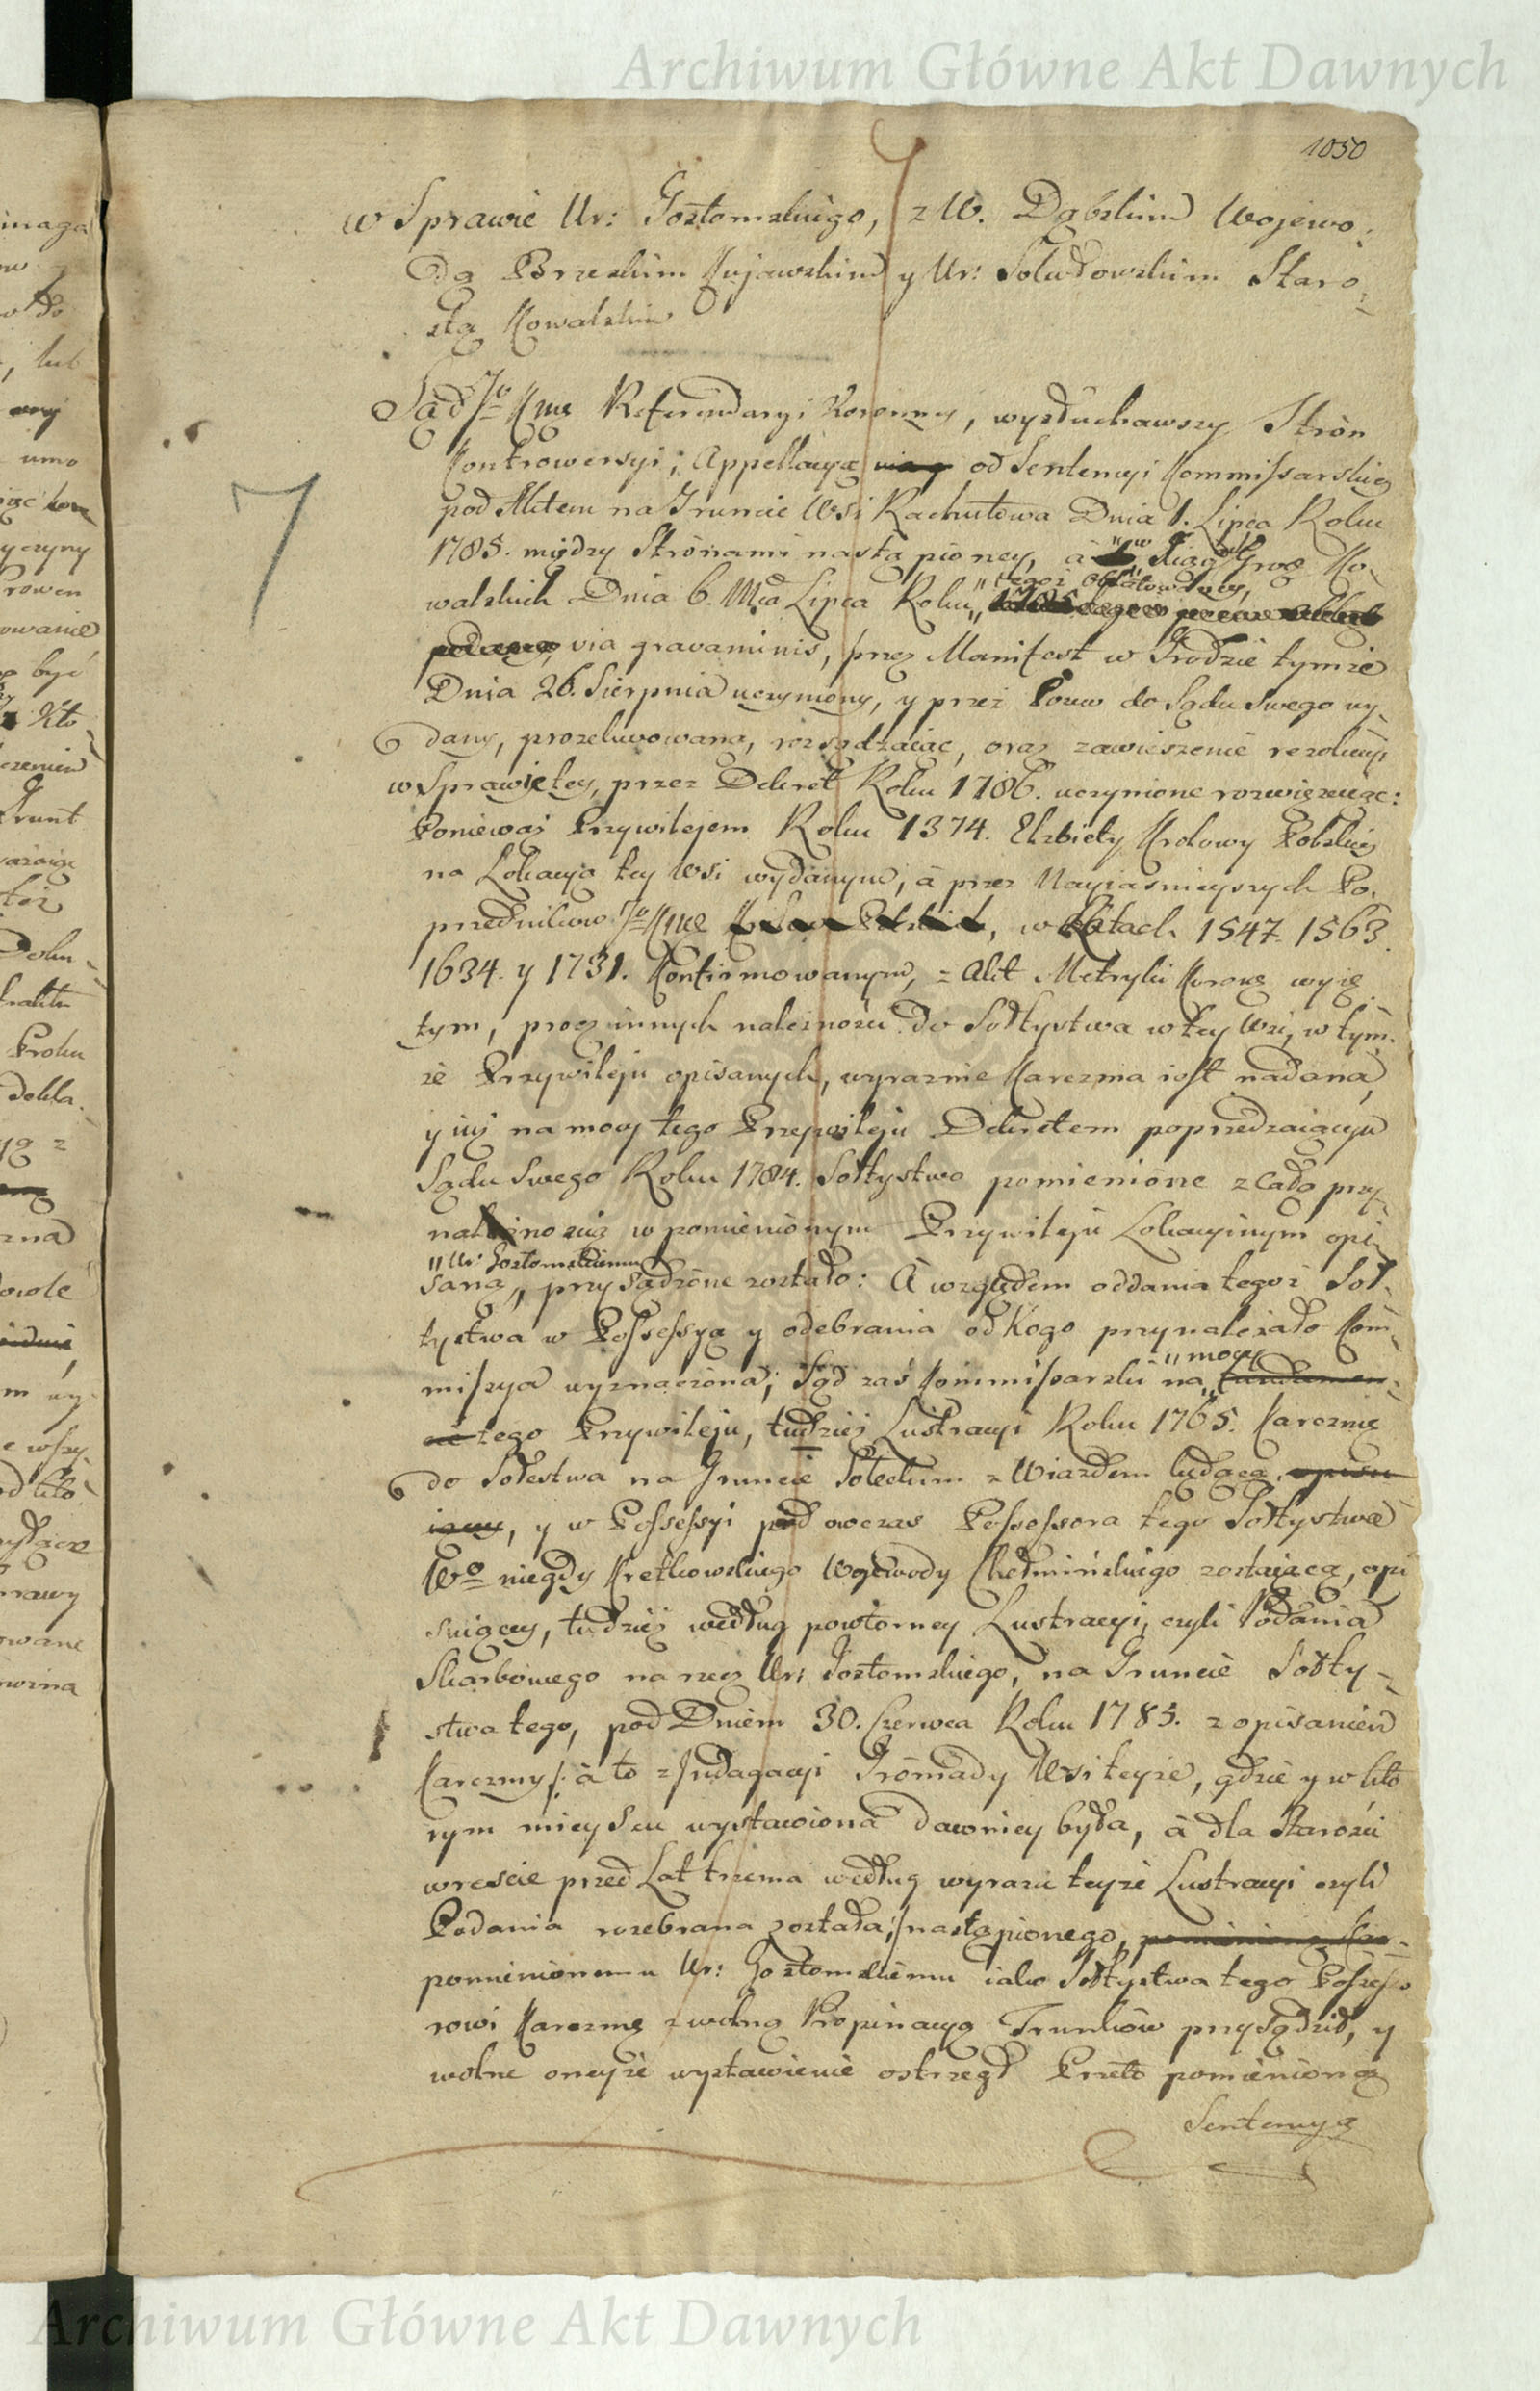 Archiwum Główne Akt Dawnych
1050
w Sprawie Ur: Gosztomskiego, z W. Dąbskim Wojewo-
dą Brzeskim Kujawskim y Ur: Sołudowskim Staro-
stą Kowalskim
Sąd Jo Kmci Referendaryi Koronney, wysłuchawszy Strón
Kontrowersyi; Appellacyą od Sentencyi Kommissarskiey
pod Aktem na Gruncie Wsi Rachutowa Dnia 1. Lipca Roku
1785. między Strónami nastąpioney, à w Xiąg Gro Ko-
walskich Dnia 6. Mca Lipca Roku „tegoż oblatowaney,
via gravaminis, przez Manifest w Grodzie tymże
Dnia 26. Sierpnia uczyniony, y przez Pozew do Sądu Swego wy-
dany, prosekwowaną, rozsądzaiąc, oraz zawieszenie rezolucyi
w Sprawie tey, przez Dekret Roku 1786. uczynione rozwięzuiąc:
Poniewaz Przywilejem Roku 1374. Elzbiety Krolowy Polskiey
na Lokacyą tey Wsi wydanym, à przez Nayiasnieyszych Po-
przedników Jo Kmci, w Latach 1547. 1563.
1634. y 1731. Konfirmowanym, z Akt Metryki Korone wyię-
tym, procz innych nalezności do Sołtystwa w tey Wsi, w tym-
że Przywileju opisanych, wyraznie Karczma iest nadana,
y iuż na mocy tego Przywileju Dekretem poprzedzaiącym
Sądu Swego Roku 1784. Sołtystwo pomienióne z całą przy-
należnoscią w pomieniónym Przywileju Lokacyinym opi-
„Ur: Gosztomskiemu
saną„ przysądzóne zostało: À względem oddania tegoż Soł-
tystwa w Possessyą y odebrania od kogo przynależało Kom-
missya wyznaczóna; Sąd zaś Kommissarski na „mocy
tego Przywileju, tudzież Lustracyi Roku 1765. Karczmę
do Sołestwa na Gruncie Soleckim z Wiazdem będącą,
y w Possessyi pod owczas Possessora tego Sołtystwa
Wo niegdy Kretkowskiego Wojewody Chełmińskiego zostaiącą, opi
suiącey, tudzież według powtorney Lustracyi, czyli Podania
Skarbowego na rzecz Ur: Gosztomskiego, na Gruncie Sołty-
stwa tego, pod Dniem 30. Czerwca Roku 1785. z opisaniem
Karczmy /: à to z Indagacyi Gromady Wsi teyże, gdzie y w któ
rym mieyscu wystawióna dawniey była, à dla Starości
wreście przed Lat trzema według wyrazu teyże Lustracyi czyli
Podania rozebrana została :/ nastąpionego,
pomienionemu Ur: Gosztomskiemu iako Sołtystwa tego Possesso
rowi Karczmę z wolną Propinacyą Trunków przysądził, y
wolne oneyże wystawienie ostrzegł Przeto pomienióną
Sentencyą
Archiwum Główne Akt Dawnych